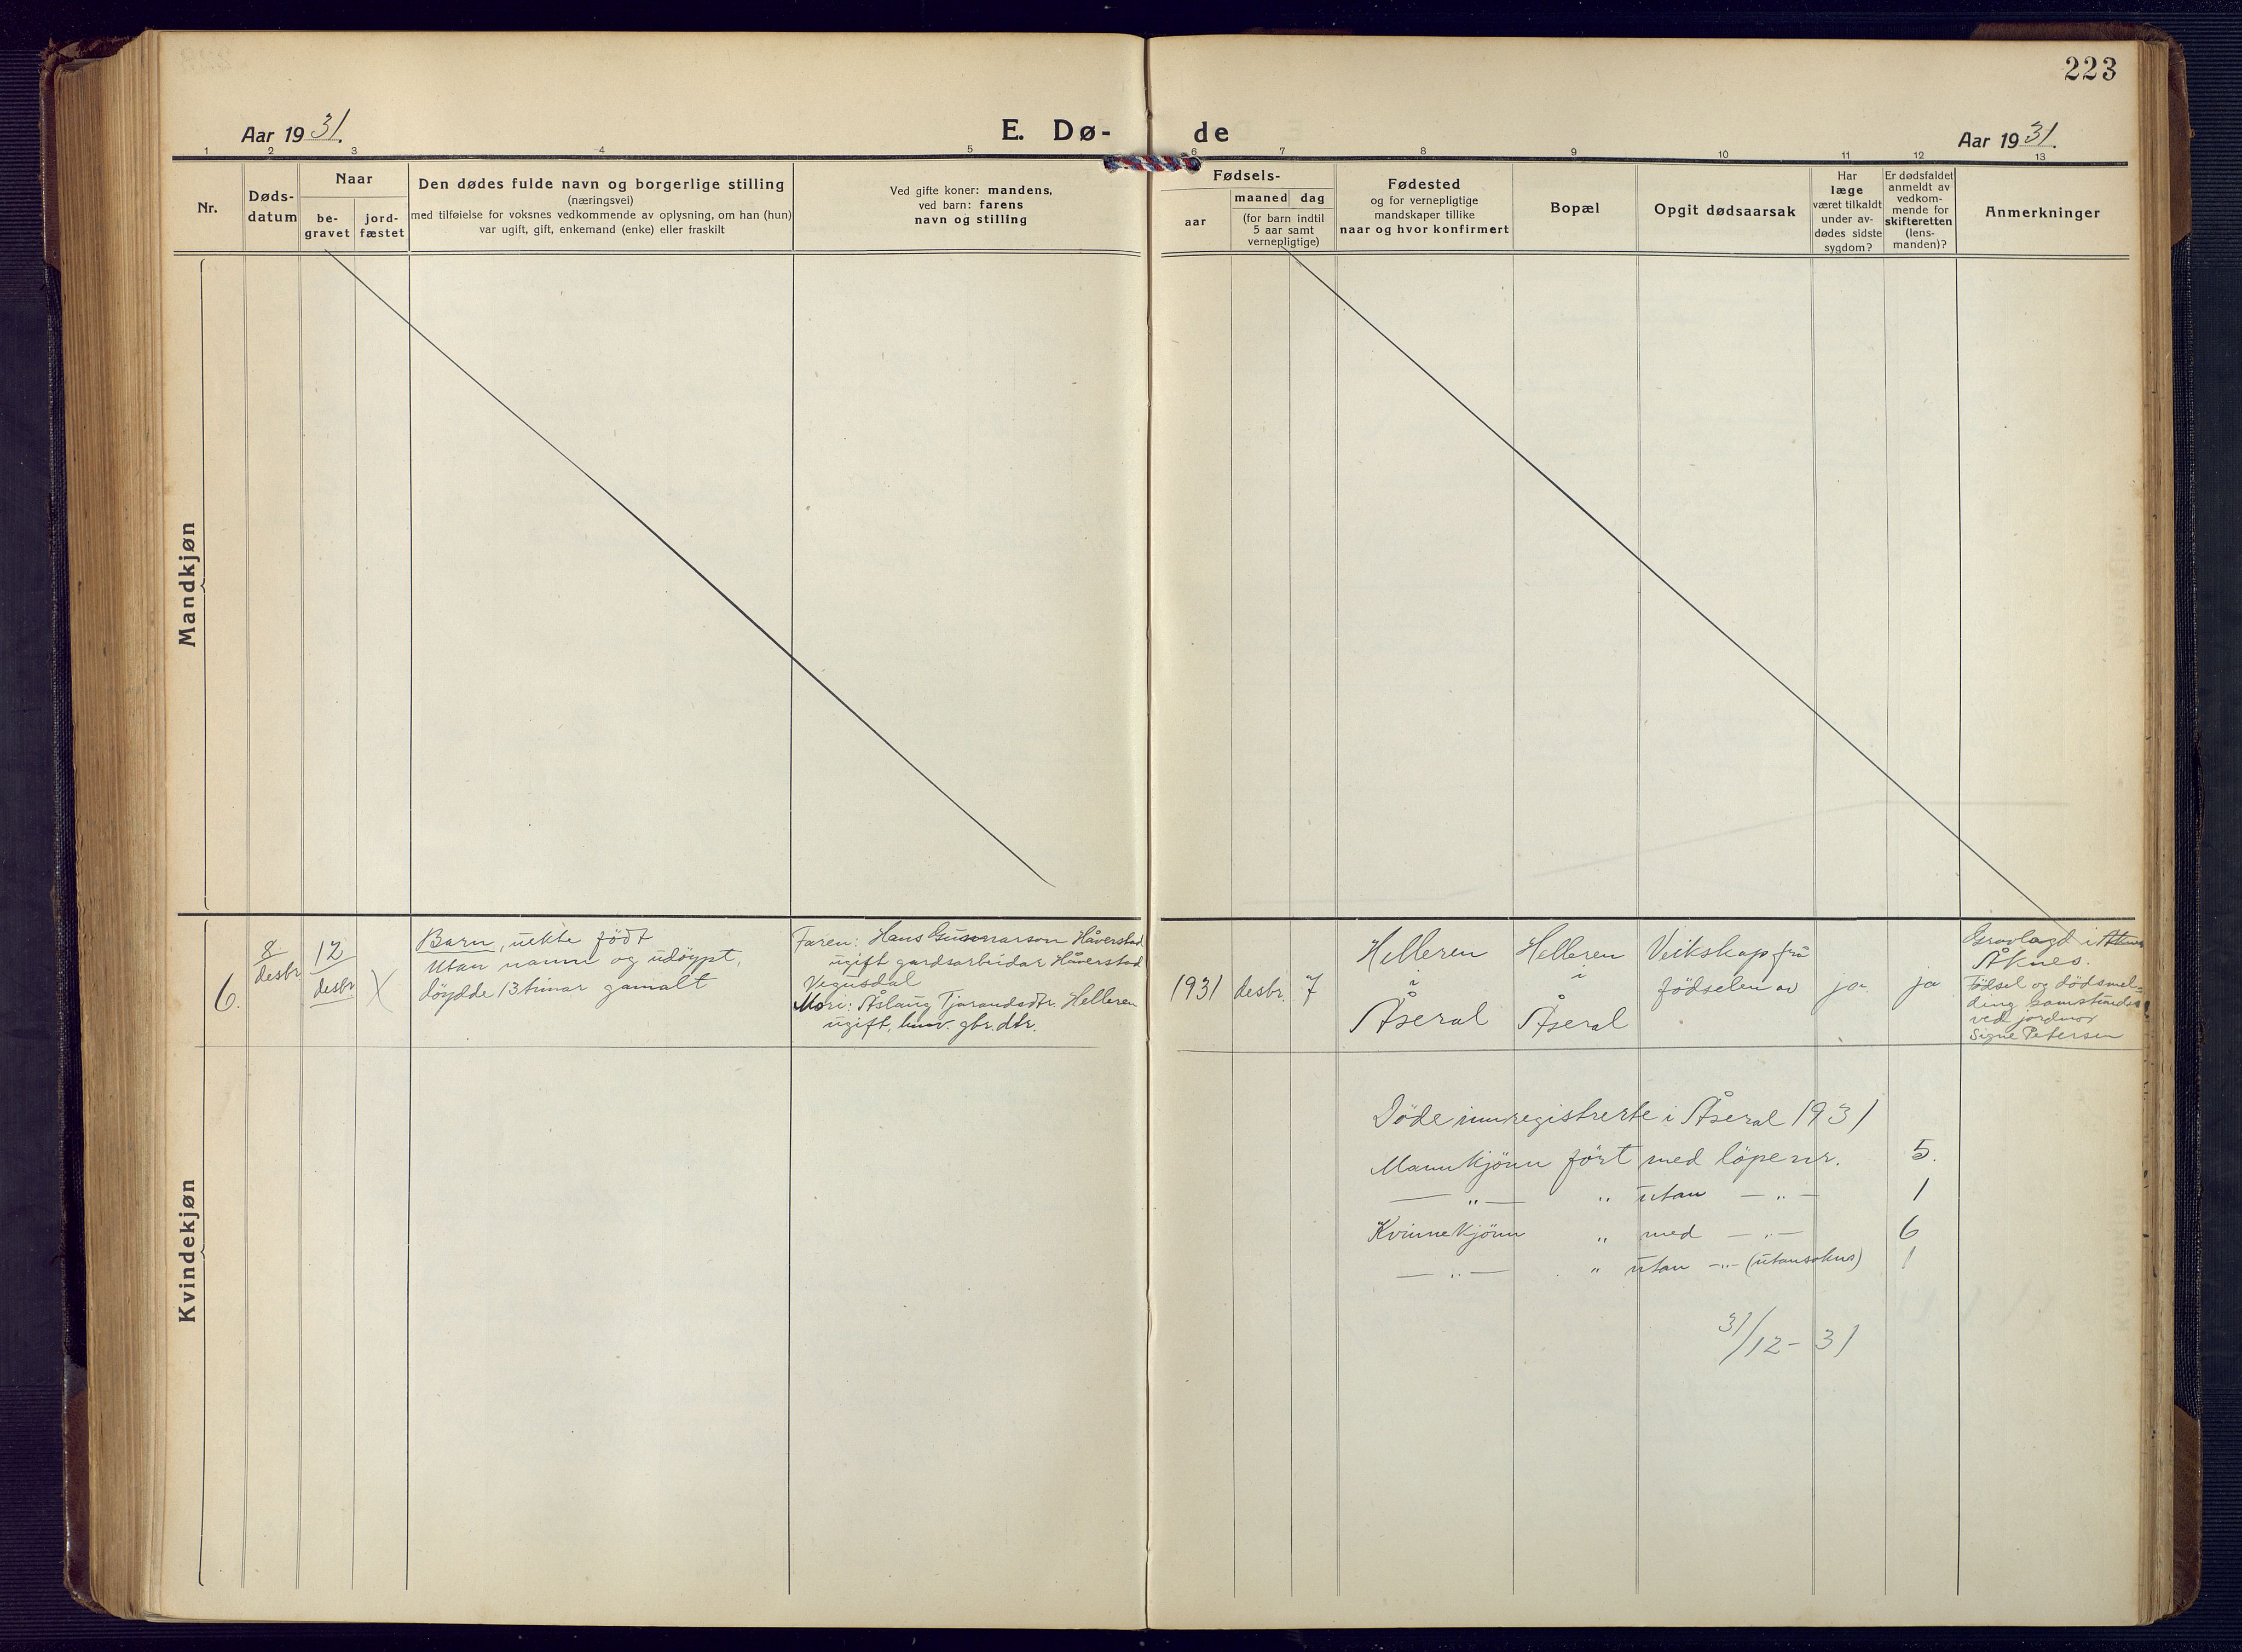 223
Aar 1931.
E. Dø-
de
Aar 1931.
1 2 3 4 5 6 7 8 9 10 11 12 13
Nr.
Døds-
datum
Naar
be-
gravet
jord-
fæstet
Den dødes fulde navn og borgerlige stilling
(næringsvei)
med tilføielse for voksnes vedkommende av oplysning, om han (hun)
var ugift, gift, enkemand (enke) eller fraskilt
Ved gifte koner: mandens,
ved barn: farens
navn og stilling
Fødsels-
aar
maaned dag
(for barn indtil
5 aar samt
vernepligtige)
Fødested
og for vernepligtige
mandskaper tillike
naar og hvor konfirmert
Bopæl
Opgit dødsaarsak
Har
læge
været tilkaldt
under av-
dødes sidste
sygdom?
Er dødsfaldet
anmeldt av
vedkom-
mende for
skifteretten
(lens-
manden)?
Anmerkninger
Mandkjøn
Kvindekjøn
6.
8
desbr
12
desbr
X
Barn, uekte födt
Utan namn og udöypt,
döydde 13 timar gamalt
Faren: Hans Gunnarson Håverstad
ugift gardsarbeidar Håverstad
Vegusdal
Mori: Åslaug Tjarandsdtr. Helleren
ugift, gbr. dtr.
1931 desbr. 7
Helleren
i
Åseral
Helleren
i
Åseral
Veikskap frå
födselen av
ja
ja
Gravlagd i
Åknes.
Födsel og dödsmel-
ding samstundes
ved jordmor
Signe Petersen
Döde innregistrerte i Åseral 1931
Mannkjönn fört med löpenr. 5.
— " — " utan — " — 1
Kvinnekjönn " med — " — 6
— " — " utan — " — (utansokns) 1
31/12-31